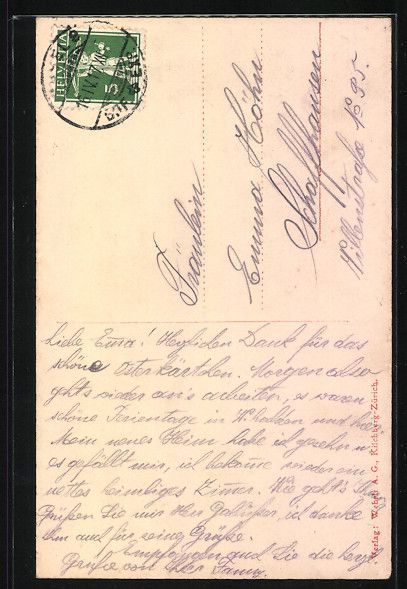 HELVETIA
5
Fräulein
Emma Höhn
Schaffhausen
No 95.
Liebe Emma! Herzlichen Dank für das
schöne Osterkärtchen. Morgen also
gehts wieder an's arbeiten, es waren
schöne Ferientage in und hier.
Mein neues Heim habe ich gesehen u
es gefällt mir, ich bekomme wieder ein
nettes heimeliges Zimer. Wie geht's
Grüßen Sie mir Her ich danke
ihm auch für seine Grüße.
Empfangen auch Sie die herzl.
Grüße von Fanny.
Verlag: Wehrli A. G., Kilchberg-Zürich.